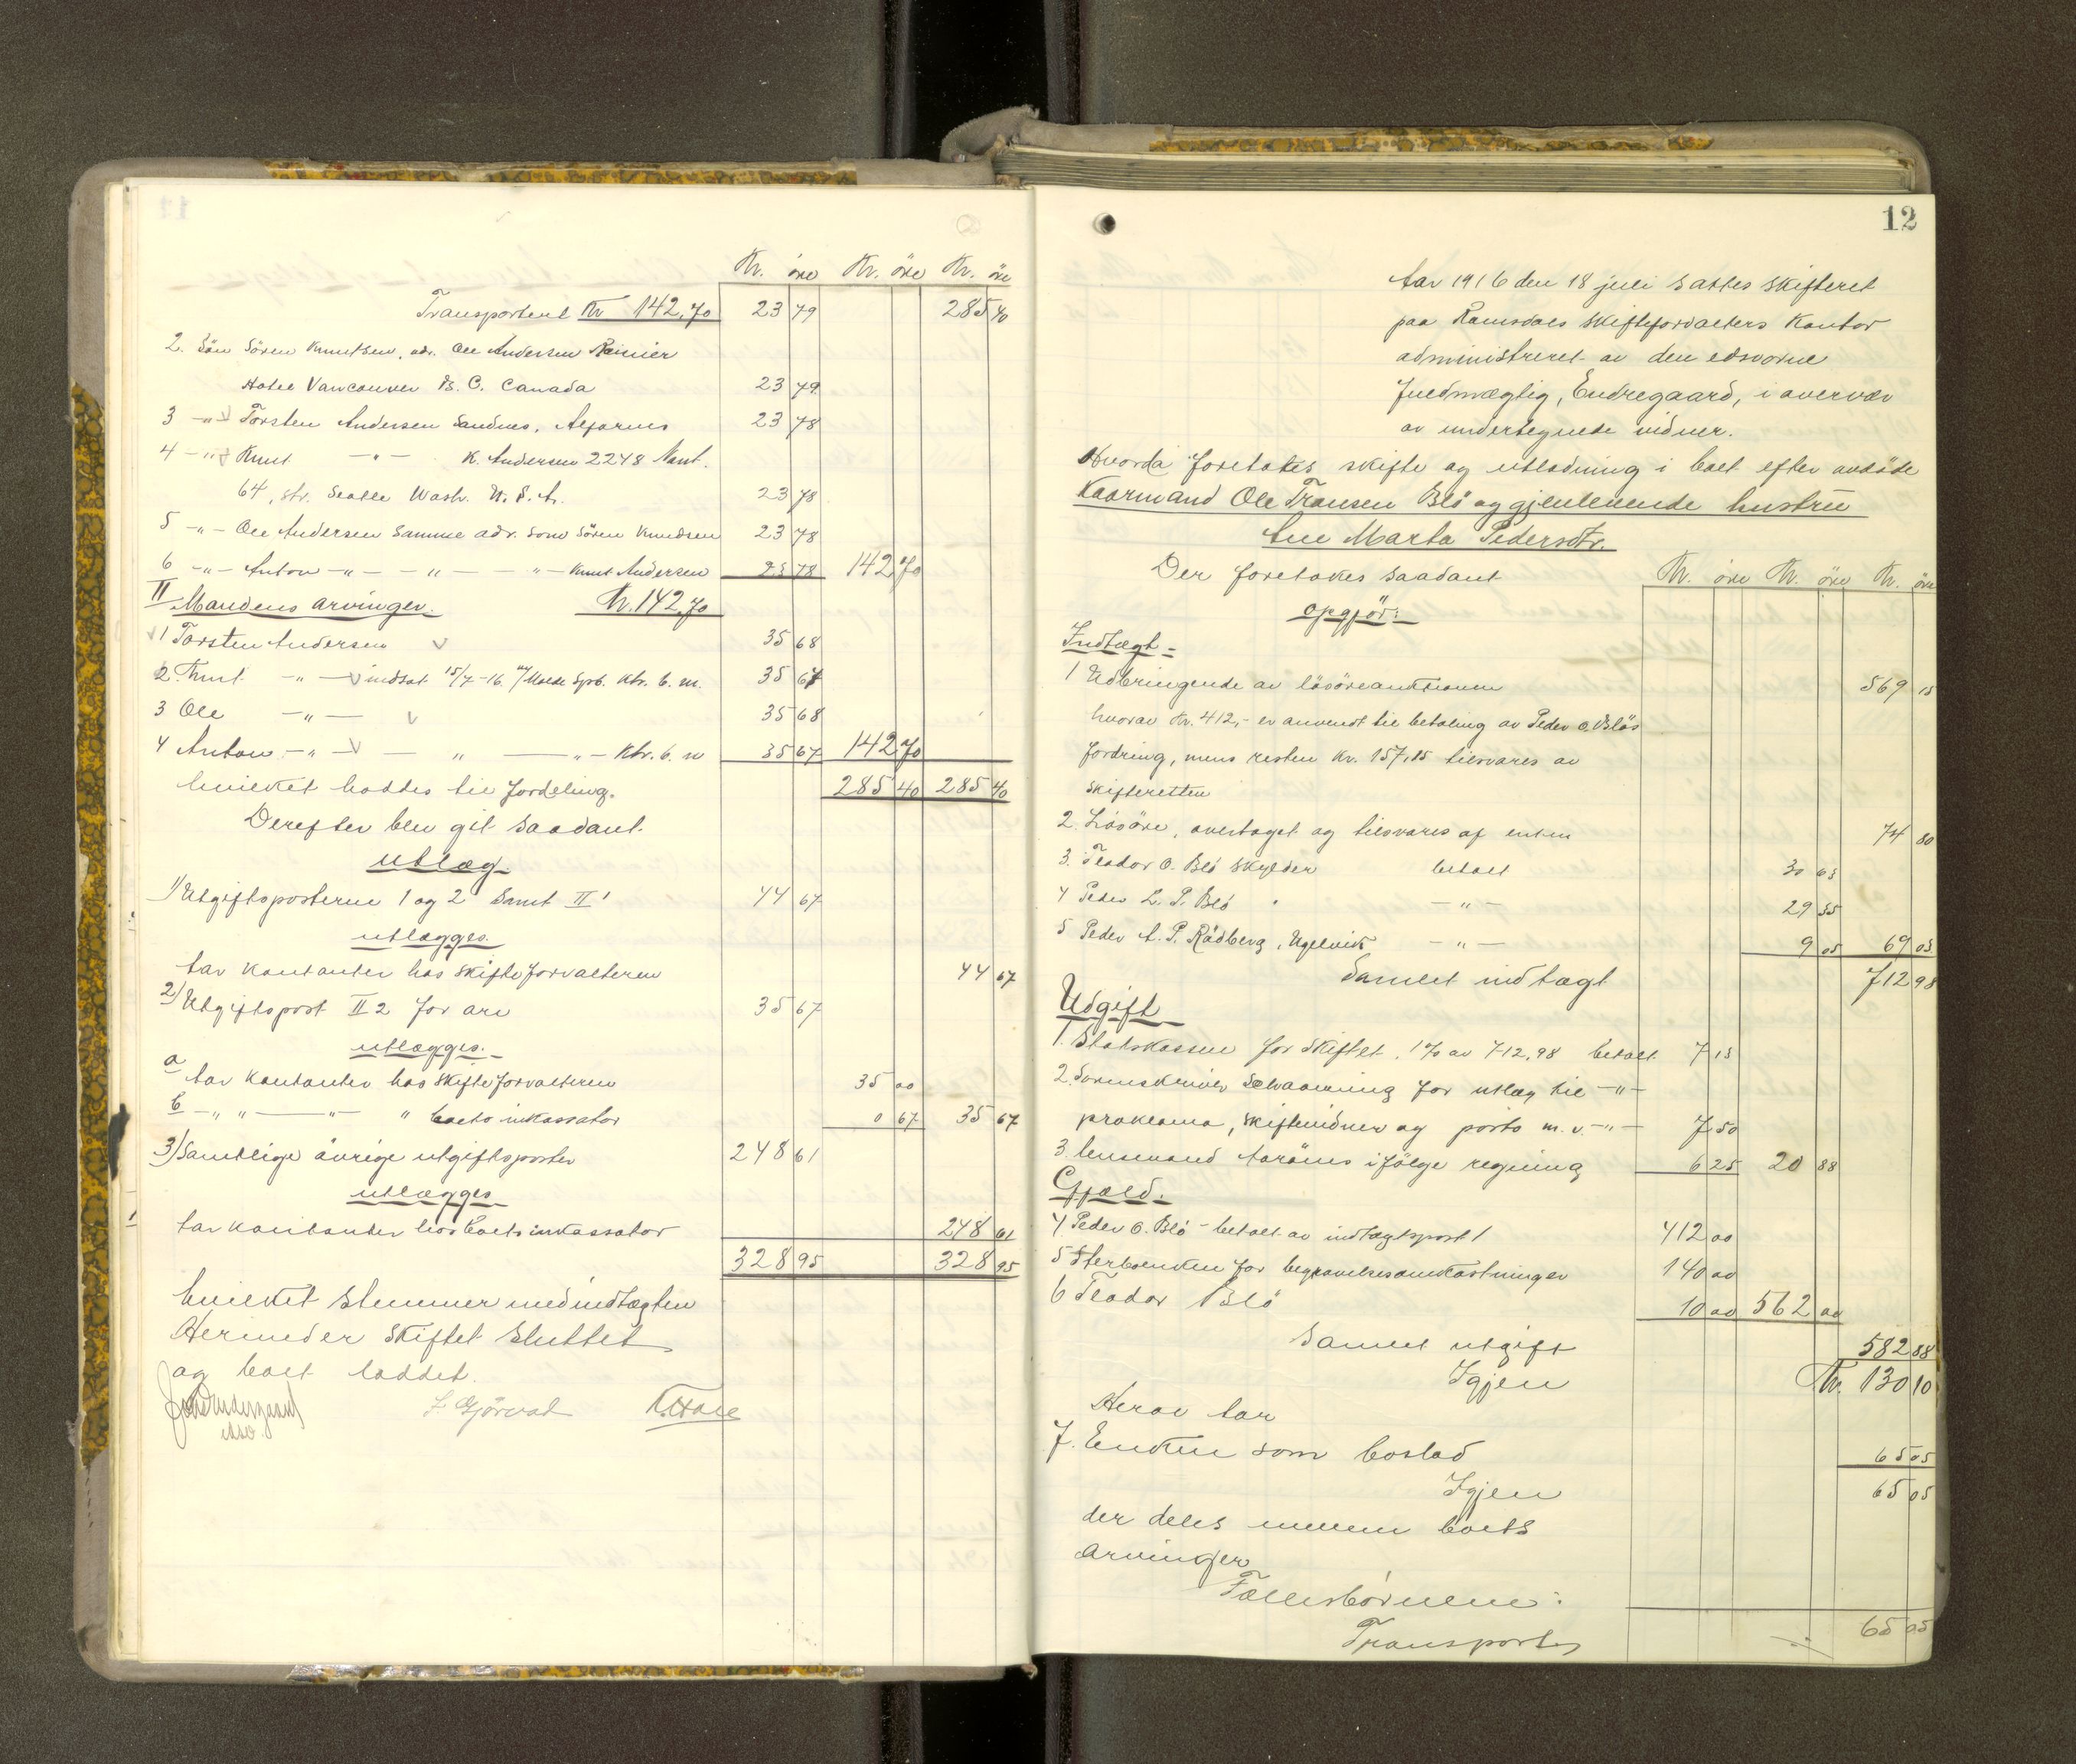 Kr. öre Kr. öre Kr. öre
Transportert Kr 142,70 23 79 285 40
2. Sön Sören Knutsen, adr. Ole Andersen Rainier
Hotel Vancouver B. C. Canada 23 79
3 -"- Torsten Andersen Sandnes, 23 78
4 -"- Knut -"- K. Andersen 2248 Nant.
64, str. Seatle Wash. U. S. A. 23 78
5 -"- Ole Andersen Samme adr. som Sören Knudsen 23 78
6 -"- Anton -"- -"- -"- Knut Andersen 23 78 142 70
II Mandens arvinger. Kr. 142,70
1 Torsten Andersen 35 68
2. Knut -"- indsat 15/7-16 i Molde Spb. Ktr. b. m. 35 67
3 Ole -"- 35 68
4 Anton -"- " -"- Ktr. b. m 35 67 142 70
hvilket loddes til fordeling. 285 40 285 40
Derefter blev git saadant
utlæg
1) Utgiftsposterne 1 og 2 samt II 1 44 67
utlægges.
tar kontanter hos skifteforvalteren 44 67
2) Utgiftspost II 2 for arv 35 67
utlægges.
a tar kontanter hos skifteforvalteren 35 00
b -"- " -"- " boets inkassator 0 67 35 67
3) Samtlige övrige utgiftsposter 248 61
utlægges
tar kontanter hos boets inkassator 248 61
328 95 328 95
hvilket stemmer med indtægten
Hermed er skiftet sluttet
og boet loddet.
L Gjörvad
12
Aar 1916 den 18 juli sattes skifteret
paa Romsdals skifteforvalters kontor
administreret av den edsvorne
fuldmægtig, Endregaard, i overvær
av undertegnede vidner.
Hvorda foretokes skifte og utlodning i boet efter avdöde
Kaarmand Ole Tronsen Blö og gjenlevende hustru
Ane Marta Pedersdtr.
Der foretokes saadant Kr. öre Kr. öre Kr. öre
opgjör:
Indtægt
1 Udbringende av lösöreauktionen 569 15
hvorav Kr. 412,- er anvendt til betaling av Peder O. Blös
fordring, mens resten Kr. 157,15 tilsvares av
skifteretten
2. Lösöre, overtaget og tilsvares af enken 74 80
3. Teodor O. Blö skylder betalt 30 63
4 Peder L. P. Blö " -"- 29 35
5 Peder A. P. Rödberg, Ugelvik -"- 9 05 69 03
Samlet indtægt 712 98
Udgift
1. Statskassen for skiftet, 1% av 712,98 betalt 7 13
2. Sorenskriver for utlæg til -"-
proklama, skiftevidner og porto m. v. -"- 7 50
3. lensmand Aarönes ifölge regning 6 25 20 88
Gjæld.
4. Peder O. Blö - betalt av indtægtspost 1 412 00
5 Sterboenken for begravelsesomkostninger 140 00
6 Teodor Blö 10 00 562 00
Samlet utgift 582 88
Igjen Kr. 130 10
Herav tar
7. Enken som boslod 65 05
Igjen 65 05
der deles mellem boets
arvinger
Fællesbörnene:
Transport 65 05